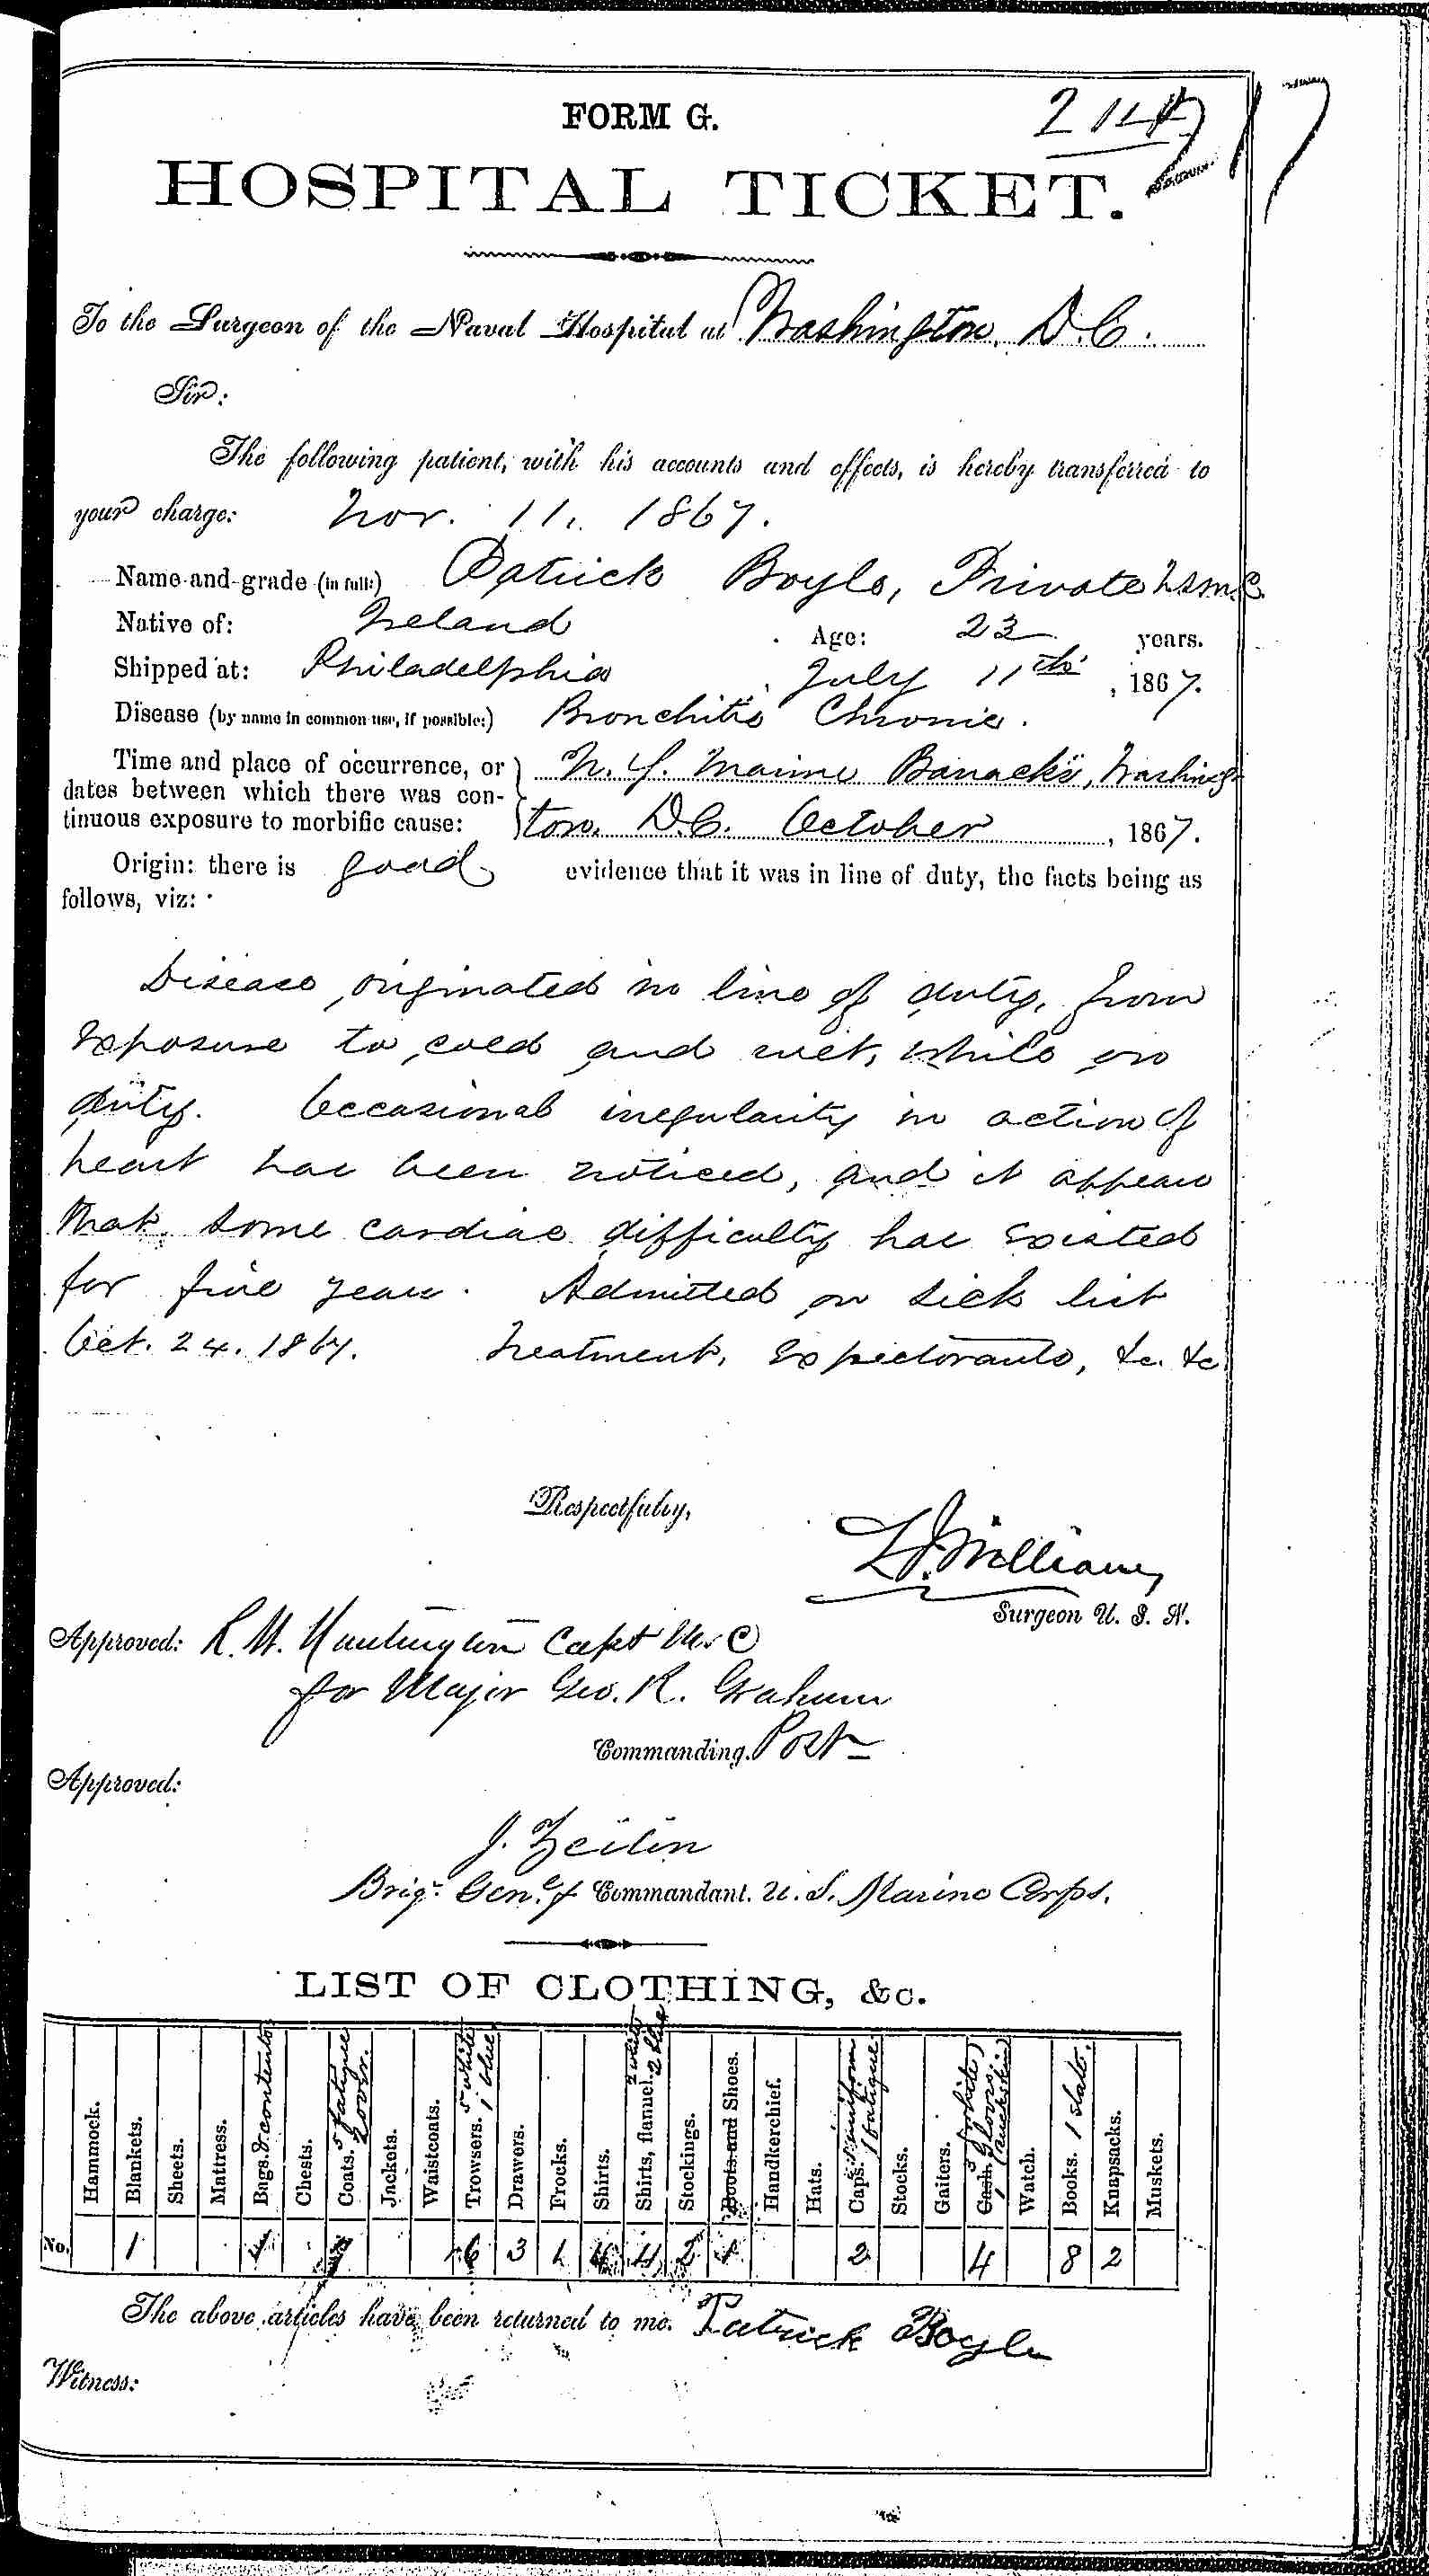 FORM G.
217
HOSPITAL TICKET.
To the Surgeon of the Naval Hospital at Washington, D.C.
Sir:
The following patient, with his accounts and effects, is hereby transferred to
your charge: Nov. 11, 1867.
Name and grade (in full:) Patrick Boyle, Private U.S.M.C.
Native of: Ireland Age: 23 years.
Shipped at: Philadelphia July 11th, 1867.
Disease (by name in common use, if possible:) Bronchitis Chronic.
Time and place of occurrence, or Marine Barracks, Washing-
dates between which there was con-
tinuous exposure to morbific cause: ton, D.C. October, 1867.
Origin: there is good evidence that it was in line of duty, the facts being as
follows, viz:
Disease originated in line of duty, from
exposure to cold and wet, while on
duty. Occasional irregularity in action of
heart has been noticed, and it appears
that some cardiac difficulty has existed
for five years. Admitted on sick list
Oct. 24. 1867. Treatment, Expectorants, &c. &c.
Respectfully,
Williams
Surgeon U. S. N.
Approved: R. W. Huntington Capt M. C
for Major Geo. R. Graham
Commanding. Post
Approved:
J. Zeilin
Brig. Genl & Commandant. U. S. Marine Corps.
LIST OF CLOTHING, &c.
Hammock. Blankets. Sheets. Mattress. Bags. & contents Chests. Coats. 5 fatigue 2 over. Jackets. Waistcoats. Trowsers. 5 white 1 blue. Drawers. Frocks. Shirts. Shirts, flannel. 2 white 2 blue Stockings. Boots and Shoes. Handkerchief. Hats. Caps. 1 uniform 1 fatigue Stocks. Gaiters. Cash. Gloves. 3 white 1 buckskin Watch. Books. 1 slate. Knapsacks. Muskets.
No. 1 1 7 6 3 1 4 4 2 1 2 4 8 2
The above articles have been returned to me. Patrick Boyle
Witness: